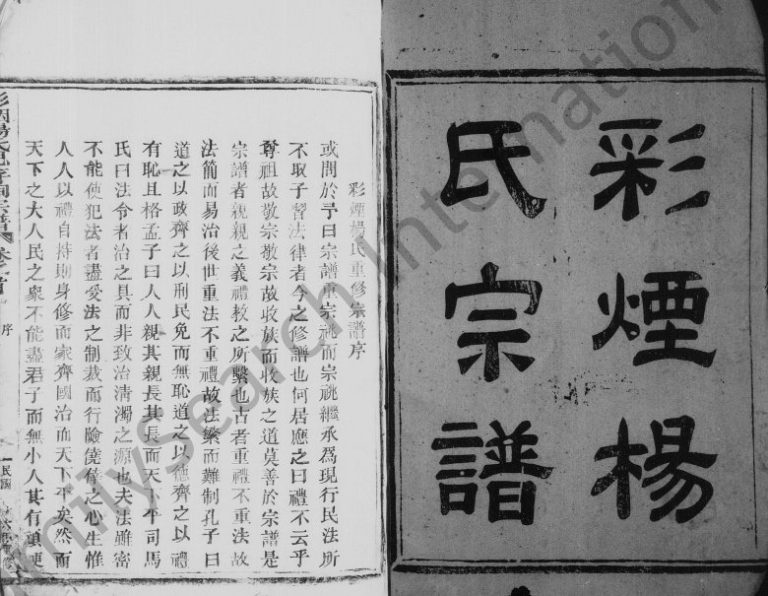 彩煙楊
氏宗譜
彩煙楊氏重修宗譜序
或問於予曰宗譜重宗祧而宗祧繼承為現行民法所
不取子習法律者今之修譜也何居應之曰禮不云乎
尊祖故敬宗敬宗故收族而收族之道莫善於宗譜是
宗譜者親親之義禮教之所繫也古者重禮不重法故
法簡而易治後世重法不重禮故法繁而難制孔子曰
道之以政齊之以刑民免而無恥道之以德齊之以禮
有恥且格孟子曰人人親其親長其長而天下平司馬
氏曰法令者治之具而非致治清濁之源也夫法雖密
不能使犯法者盡受法之制裁而行險僥倖之心生惟
人人以禮自持則身修而家齊國治而天下平矣然而
天下之大人民之衆不能盡君子而無小人其有頑更
宗譜
卷之首
序
民國
FamilySearch International